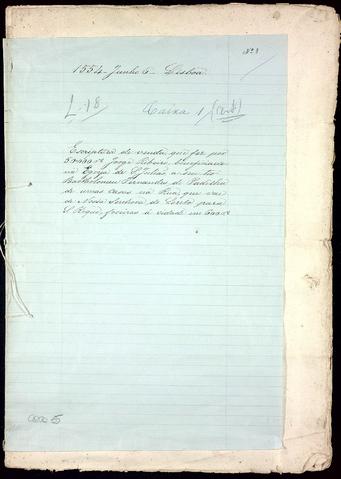 Nº 1
1554 - Junho 6 - Lisboa
L. 18 Caixa 1
Escriptura de venda, que fez por
Jorge Ribeiro,
na Egreja de S. Julião a seu tio
Bartholomeu Fernandes de Padilha
de umas casas na Rua, que vae
de Nossa Senhora do Loreto para
S. Roque, foreiras á cidade em